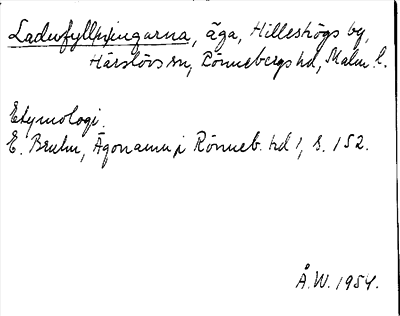 Laduvfyll(n)ingarna, äga, Hilleshögs by,
Härslövs sn, Rönnebergs hd, Malm. l.
Etymologi.
E. Bruhn, Ägonamn i Rönneb. hd 1, s. 152.
Å.W. 1954.